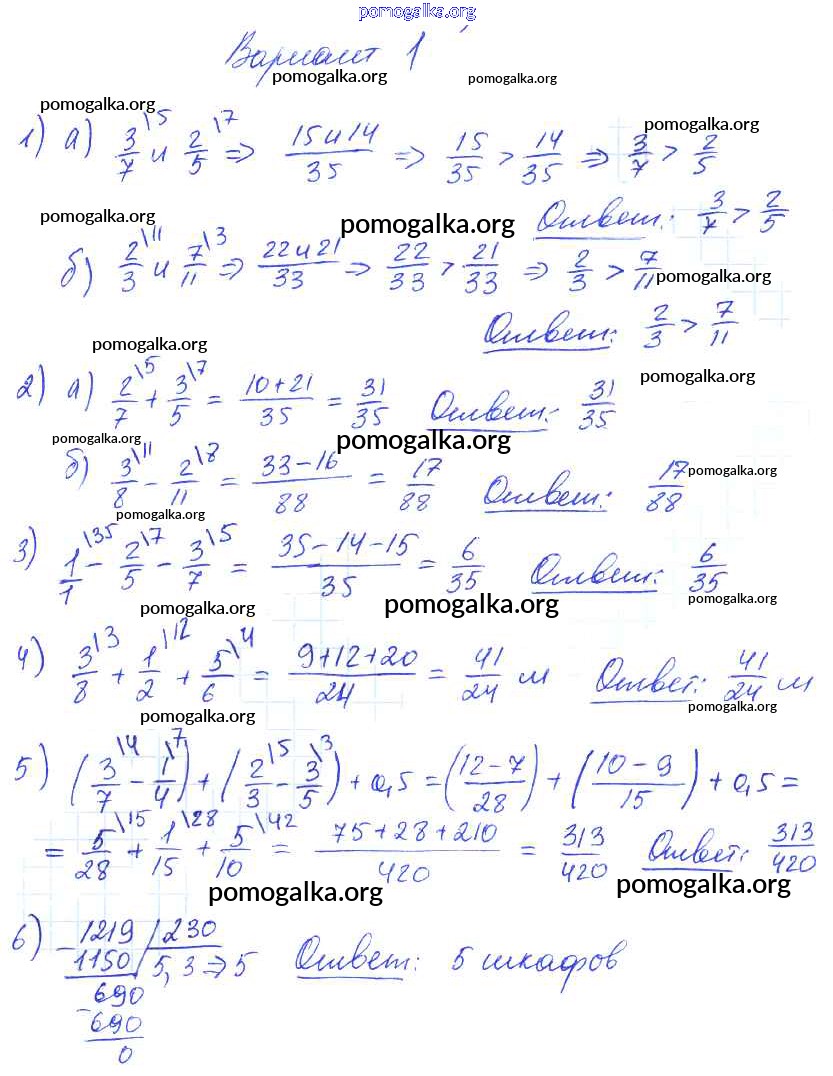 pomogalka.org
Вариант 1
pomogalka.org pomogalka.org
pomogalka.org
1) а) 3/7 \5 и 2/5 \7 => 15 и 14/35 => 15/35 > 14/35 => 3/7 > 2/5
pomogalka.org
pomogalka.org pomogalka.org
Ответ: 3/7 > 2/5
б) 2/3 \11 и 7/11 \3 => 22 и 21/33 => 22/33 > 21/33 => 2/3 > 7/11
pomogalka.org
Ответ: 2/3 > 7/11
pomogalka.org
2) а) 2/7 \5 + 3/5 \7 = 10+21/35 = 31/35 Ответ: 31/35
pomogalka.org
pomogalka.org pomogalka.org
б) 3/8 \11 - 2/11 \8 = 33-16/88 = 17/88 Ответ: 17/88
pomogalka.org
pomogalka.org
3) 1/1 \35 - 2/5 \7 - 3/7 \5 = 35-14-15/35 = 6/35 Ответ: 6/35
pomogalka.org pomogalka.org pomogalka.org
4) 3/8 \3 + 1/2 \12 + 5/6 \4 = 9+12+20/24 = 41/24 м Ответ: 41/24 м
pomogalka.org pomogalka.org
5) (3/7 \4 - 1/4 \7) + (2/3 \5 - 3/5 \3) + 0,5 = (12-7/28) + (10-9/15) + 0,5 =
= 5/28 \15 + 1/15 \28 + 5/10 \42 = 75+28+210/420 = 313/420 Ответ: 313/420
pomogalka.org pomogalka.org
6) - 1219 / 230
1150 5,3 => 5 Ответ: 5 шкафов
690
- 690
0